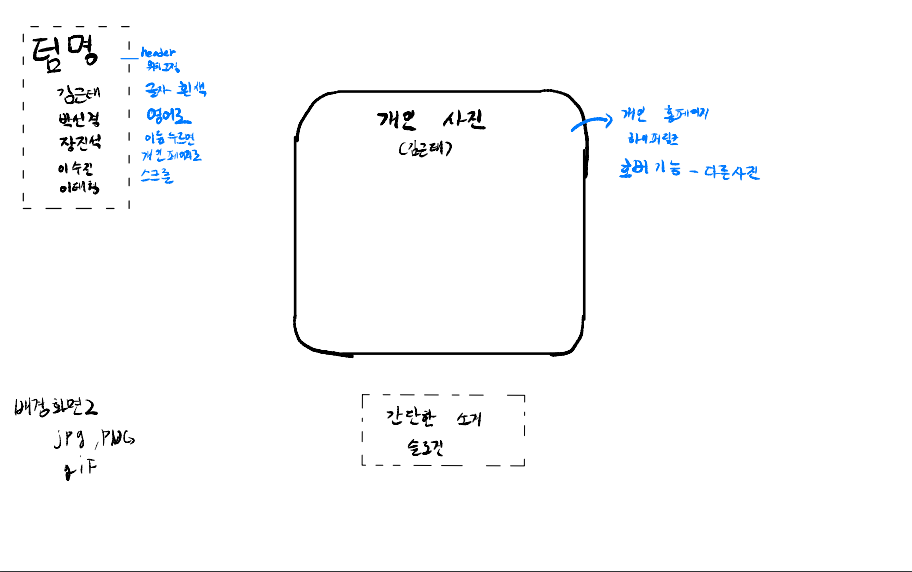 팀명
김근태
박선경
장진석
이수진
이태형
header
위치고정
글자 흰색
영어로
이름 누르면
개인 페이지로
스크롤
개인 사진
(김근태)
개인 홈페이지
하이퍼링크
호버 기능 - 다른사진
배경화면2
jpg, PNG
giF
간단한 소개
슬로건